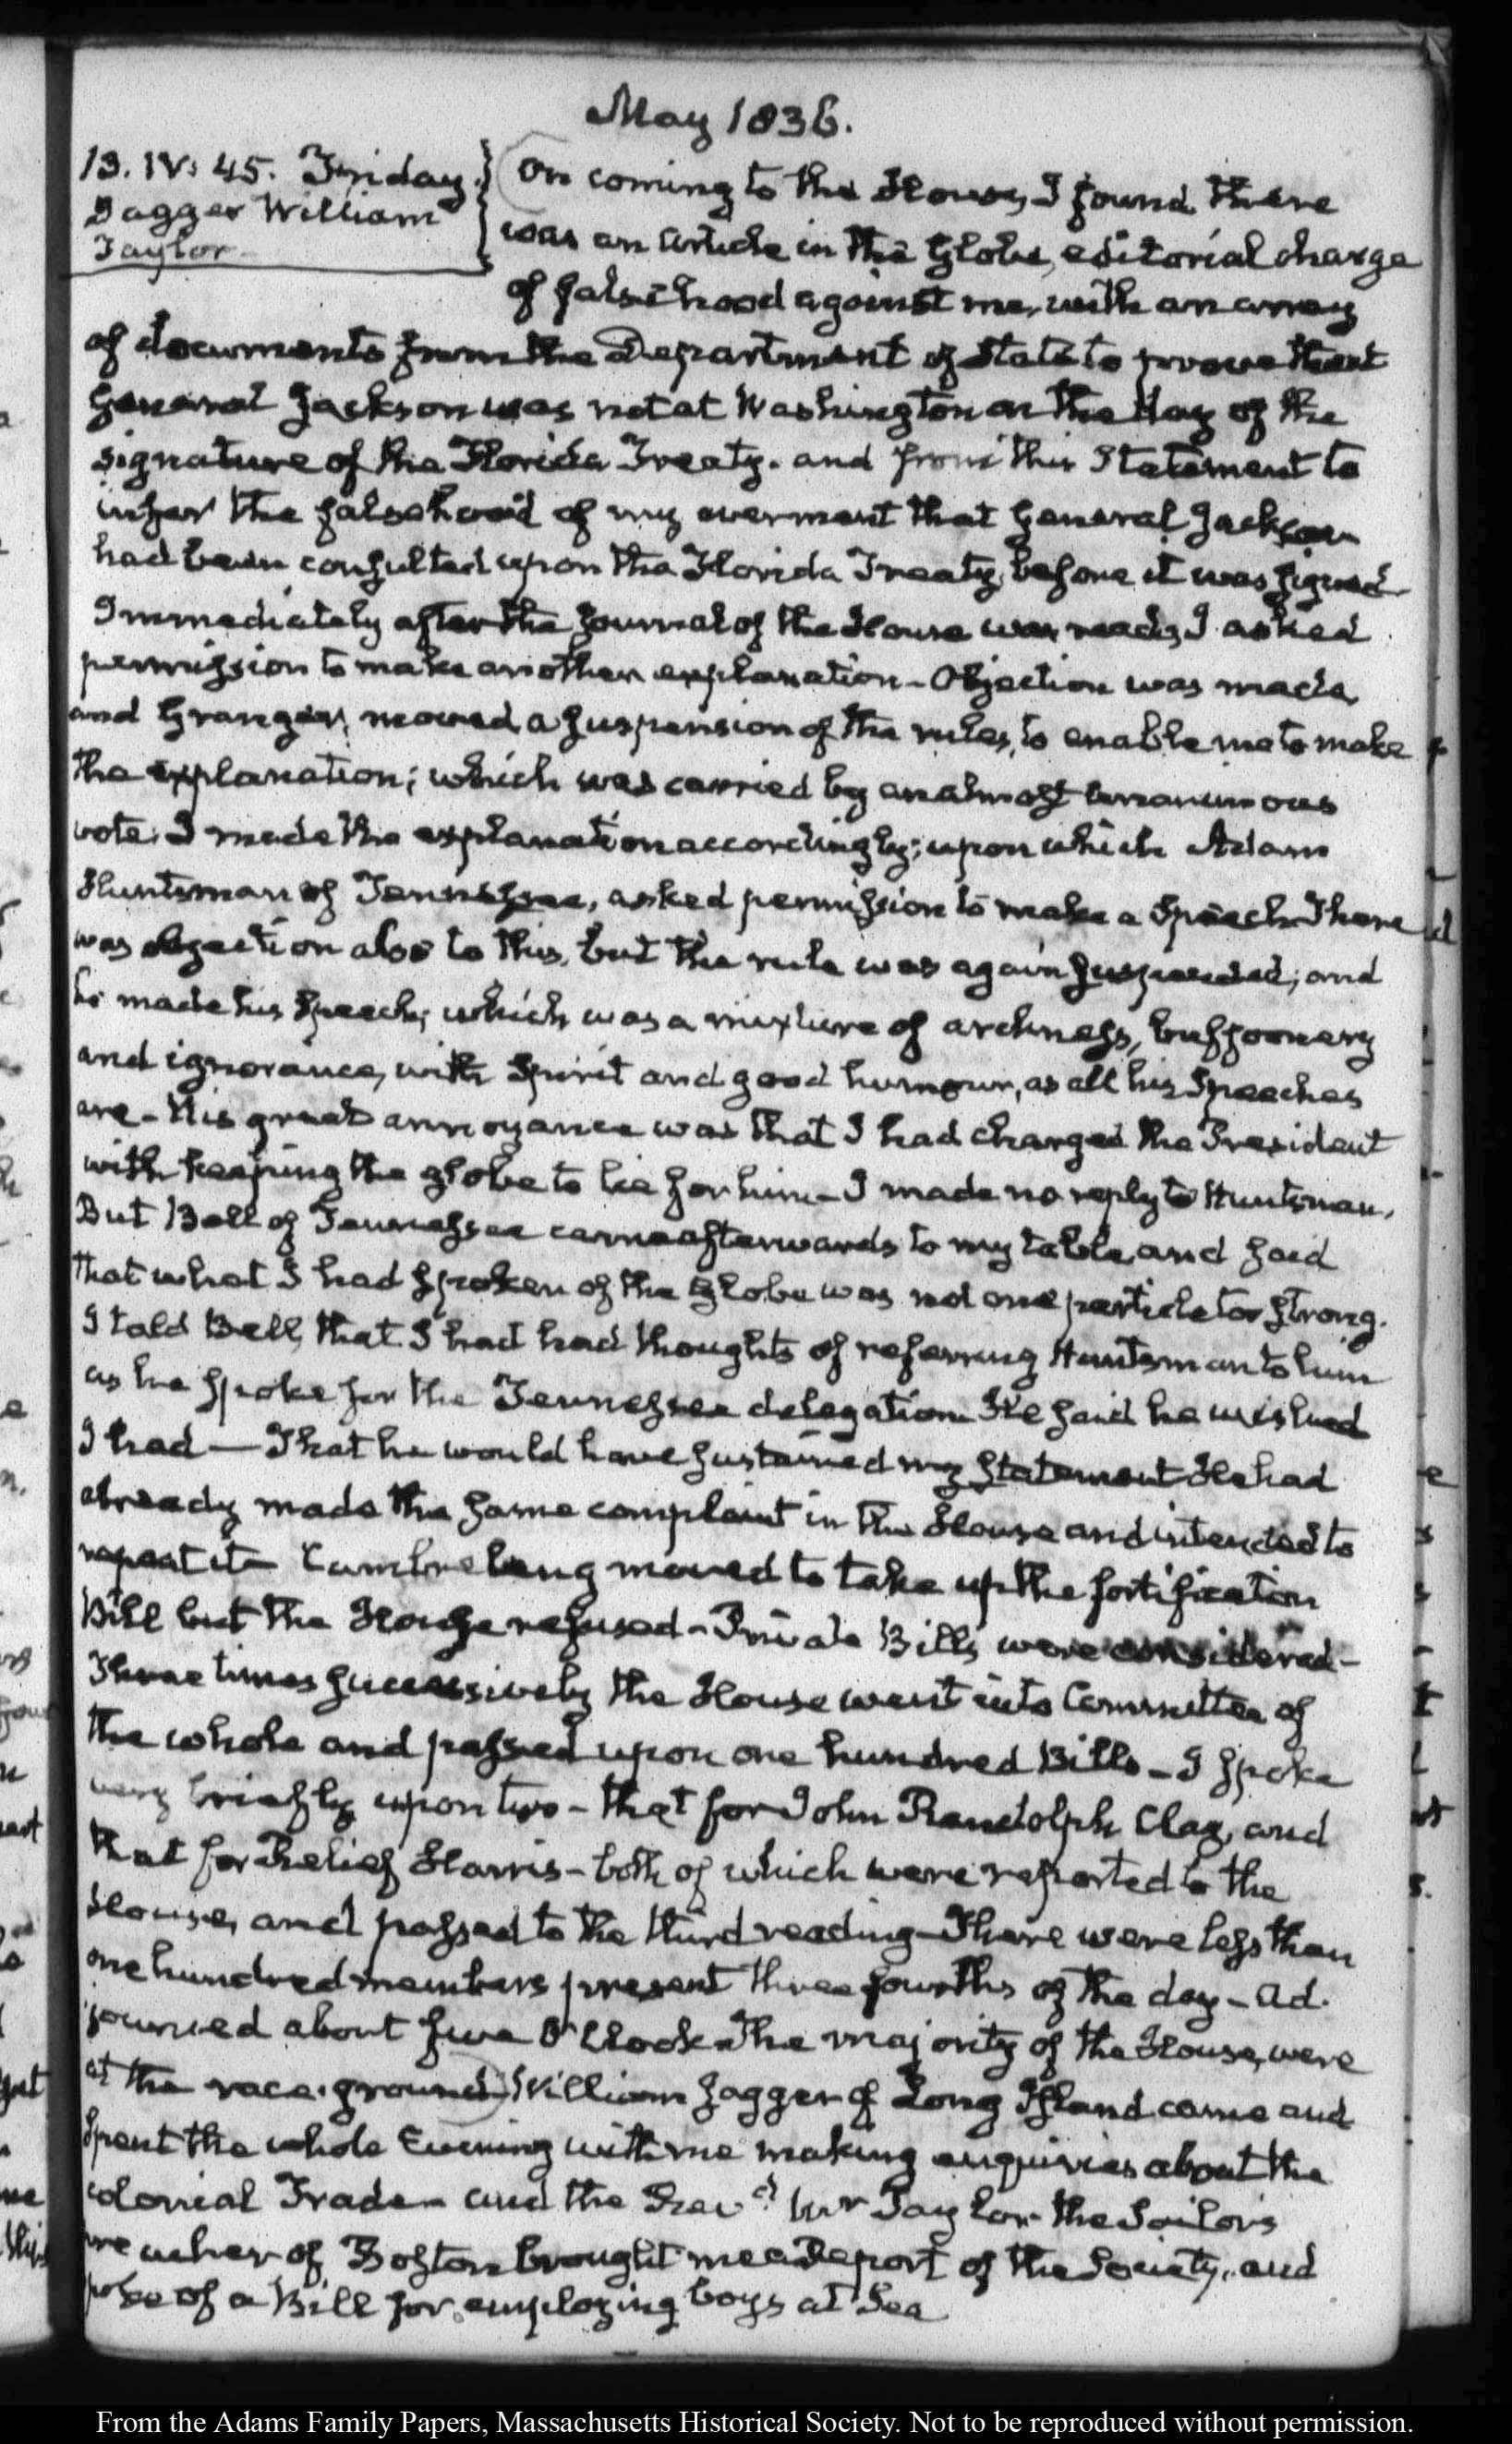 May 1836.
13. IV: 45. Friday.
Jagger William
Taylor
On coming to the House, I found there
was an Article in the Globe, editorial charge
of falsehood against me, with an array
of documents from the Department of State to prove that
General Jackson was not at Washington on the day of the
signature of the Florida Treaty. and from this Statement to
infer the falsehood of my averment that General Jackson
had been consulted upon the Florida Treaty, before it was signed
Immediately after the Journal of the House was read, I asked
permission to make another explanation - Objection was made,
and Granger, moved a suspension of the rules, to enable me to make
the explanation; which was carried by an almost unanimous
vote. I made the explanation accordingly; upon which Adam
Huntsman of Tennessee, asked permission to make a Speech. There
was objection also to this, but the rule was again suspended; and
he made his Speech; which was a mixture of archness, buffoonery
and ignorance, with Spirit and good humour, as all his Speeches
are - His great annoyance was that I had charged the President
with keeping the Globe to lie for him - I made no reply to Huntsman.
But Bell of Tennessee came afterwards to my table, and said
that what I had spoken of the Globe was not one particle too strong.
I told Bell, that I had had thoughts of referring Huntsman to him
as he spoke for the Tennessee delegation. He said he wished
I had — That he would have sustained my statement He had
already made the same complaint in the House and intended to
repeat it - Cambreleng moved to take up the fortification
Bill but the House refused - Private Bills were considered -
Three times successively the House went into Committee of
the whole and passed upon one hundred Bills - I spoke
very briefly upon two - that for John Randolph Clay, and
that for Relief Harris - both of which were reported to the
House, and passed to the third reading - There were less than
one hundred members present three fourths of the day - Ad-
journed about five O'Clock. The majority of the House, were
at the race-ground. William Jagger of Long Island came and
Spent the whole Evening with me making enquiries about the
colonial Trade - and the Revd. Mr Taylor the Sailor's
preacher of Boston brought me a Report of the Society, and
spoke of a Bill for employing boys at Sea
From the Adams Family Papers, Massachusetts Historical Society. Not to be reproduced without permission.